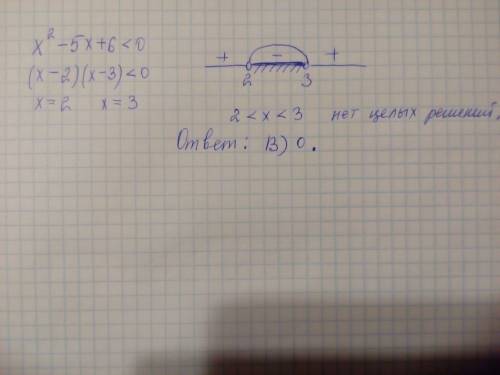 x² - 5x + 6 < 0
(x - 2)(x - 3) < 0
x = 2 x = 3
+ - +
2 3
2 < x < 3 нет целых решений.
Ответ: В) 0.